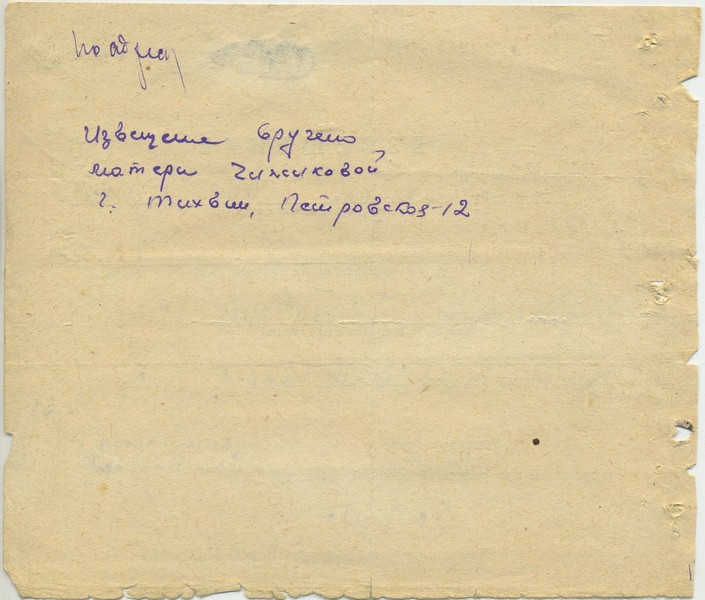 Извещение вручено
матери Чижиковой
г. Тихвин, Петровская-12